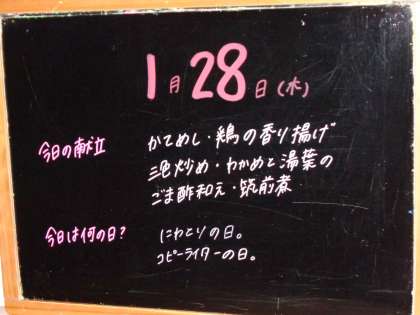 1月28日(木)
今日の献立 かてめし・鶏の香り揚げ
三色炒め・わかめと湯葉の
ごま酢和え・筑前煮
今日は何の日? にわとりの日。
コピーライターの日。